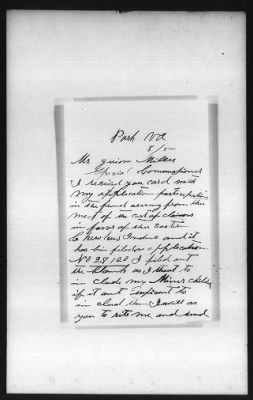 Park Va
8/5
Mr guion Miller
Special Commissioner
I recived you card with
my application participation
in the fund arising from the
ment of the cort of claims
in favor of the eastern
Cherokee Indens and it
has bin filed as application
No 28120 I filed out
the blank as I thout to
in clude my Miner childre
if it ant sufficent to
in clud them I will as
you to rite me and send